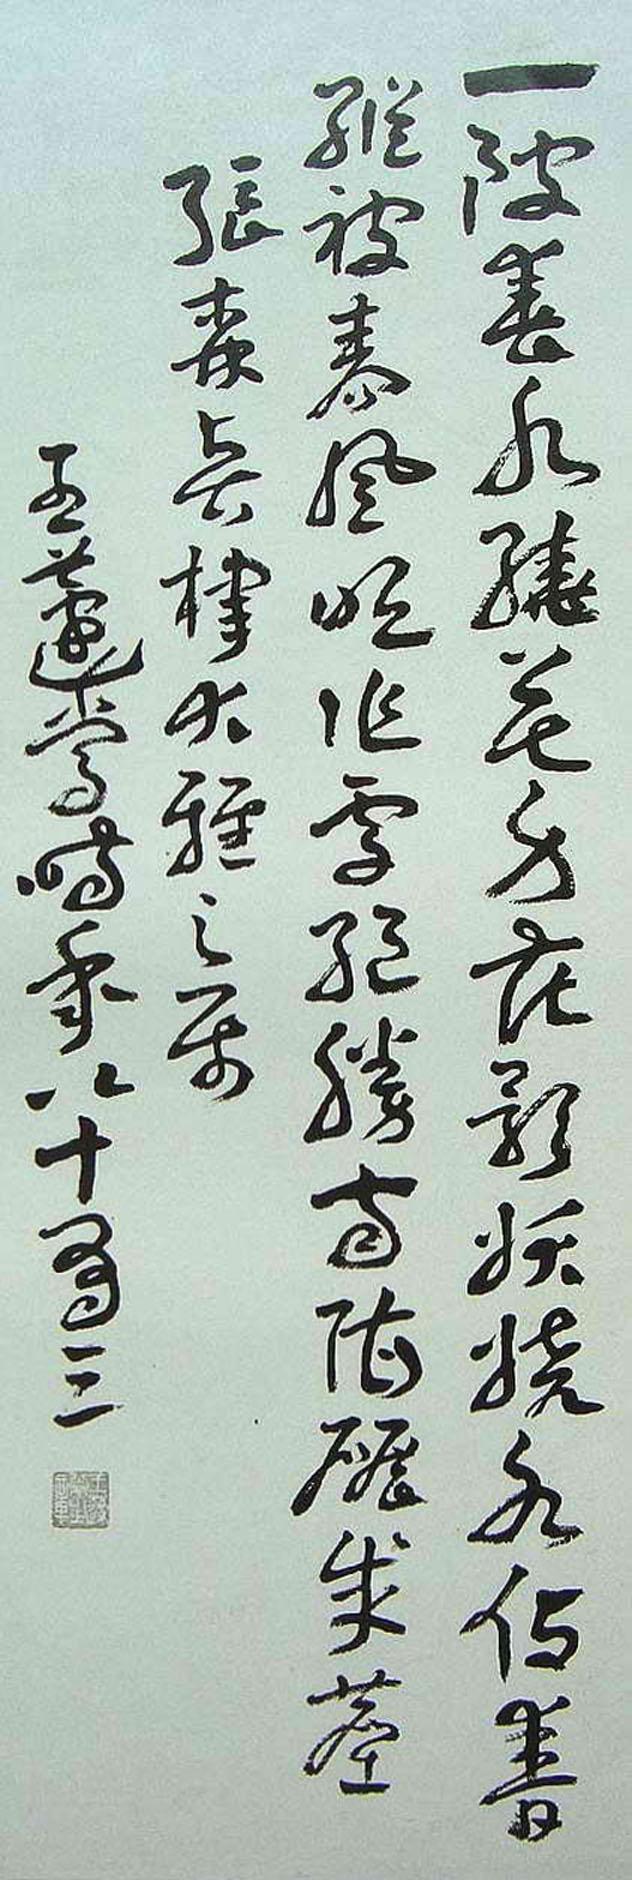 一陂春水繞花身花影妖嬈各佔春
縱被春風吹作雪絕勝南陌碾成塵
張森棣大雅之屬
王蘧常時年八十有三